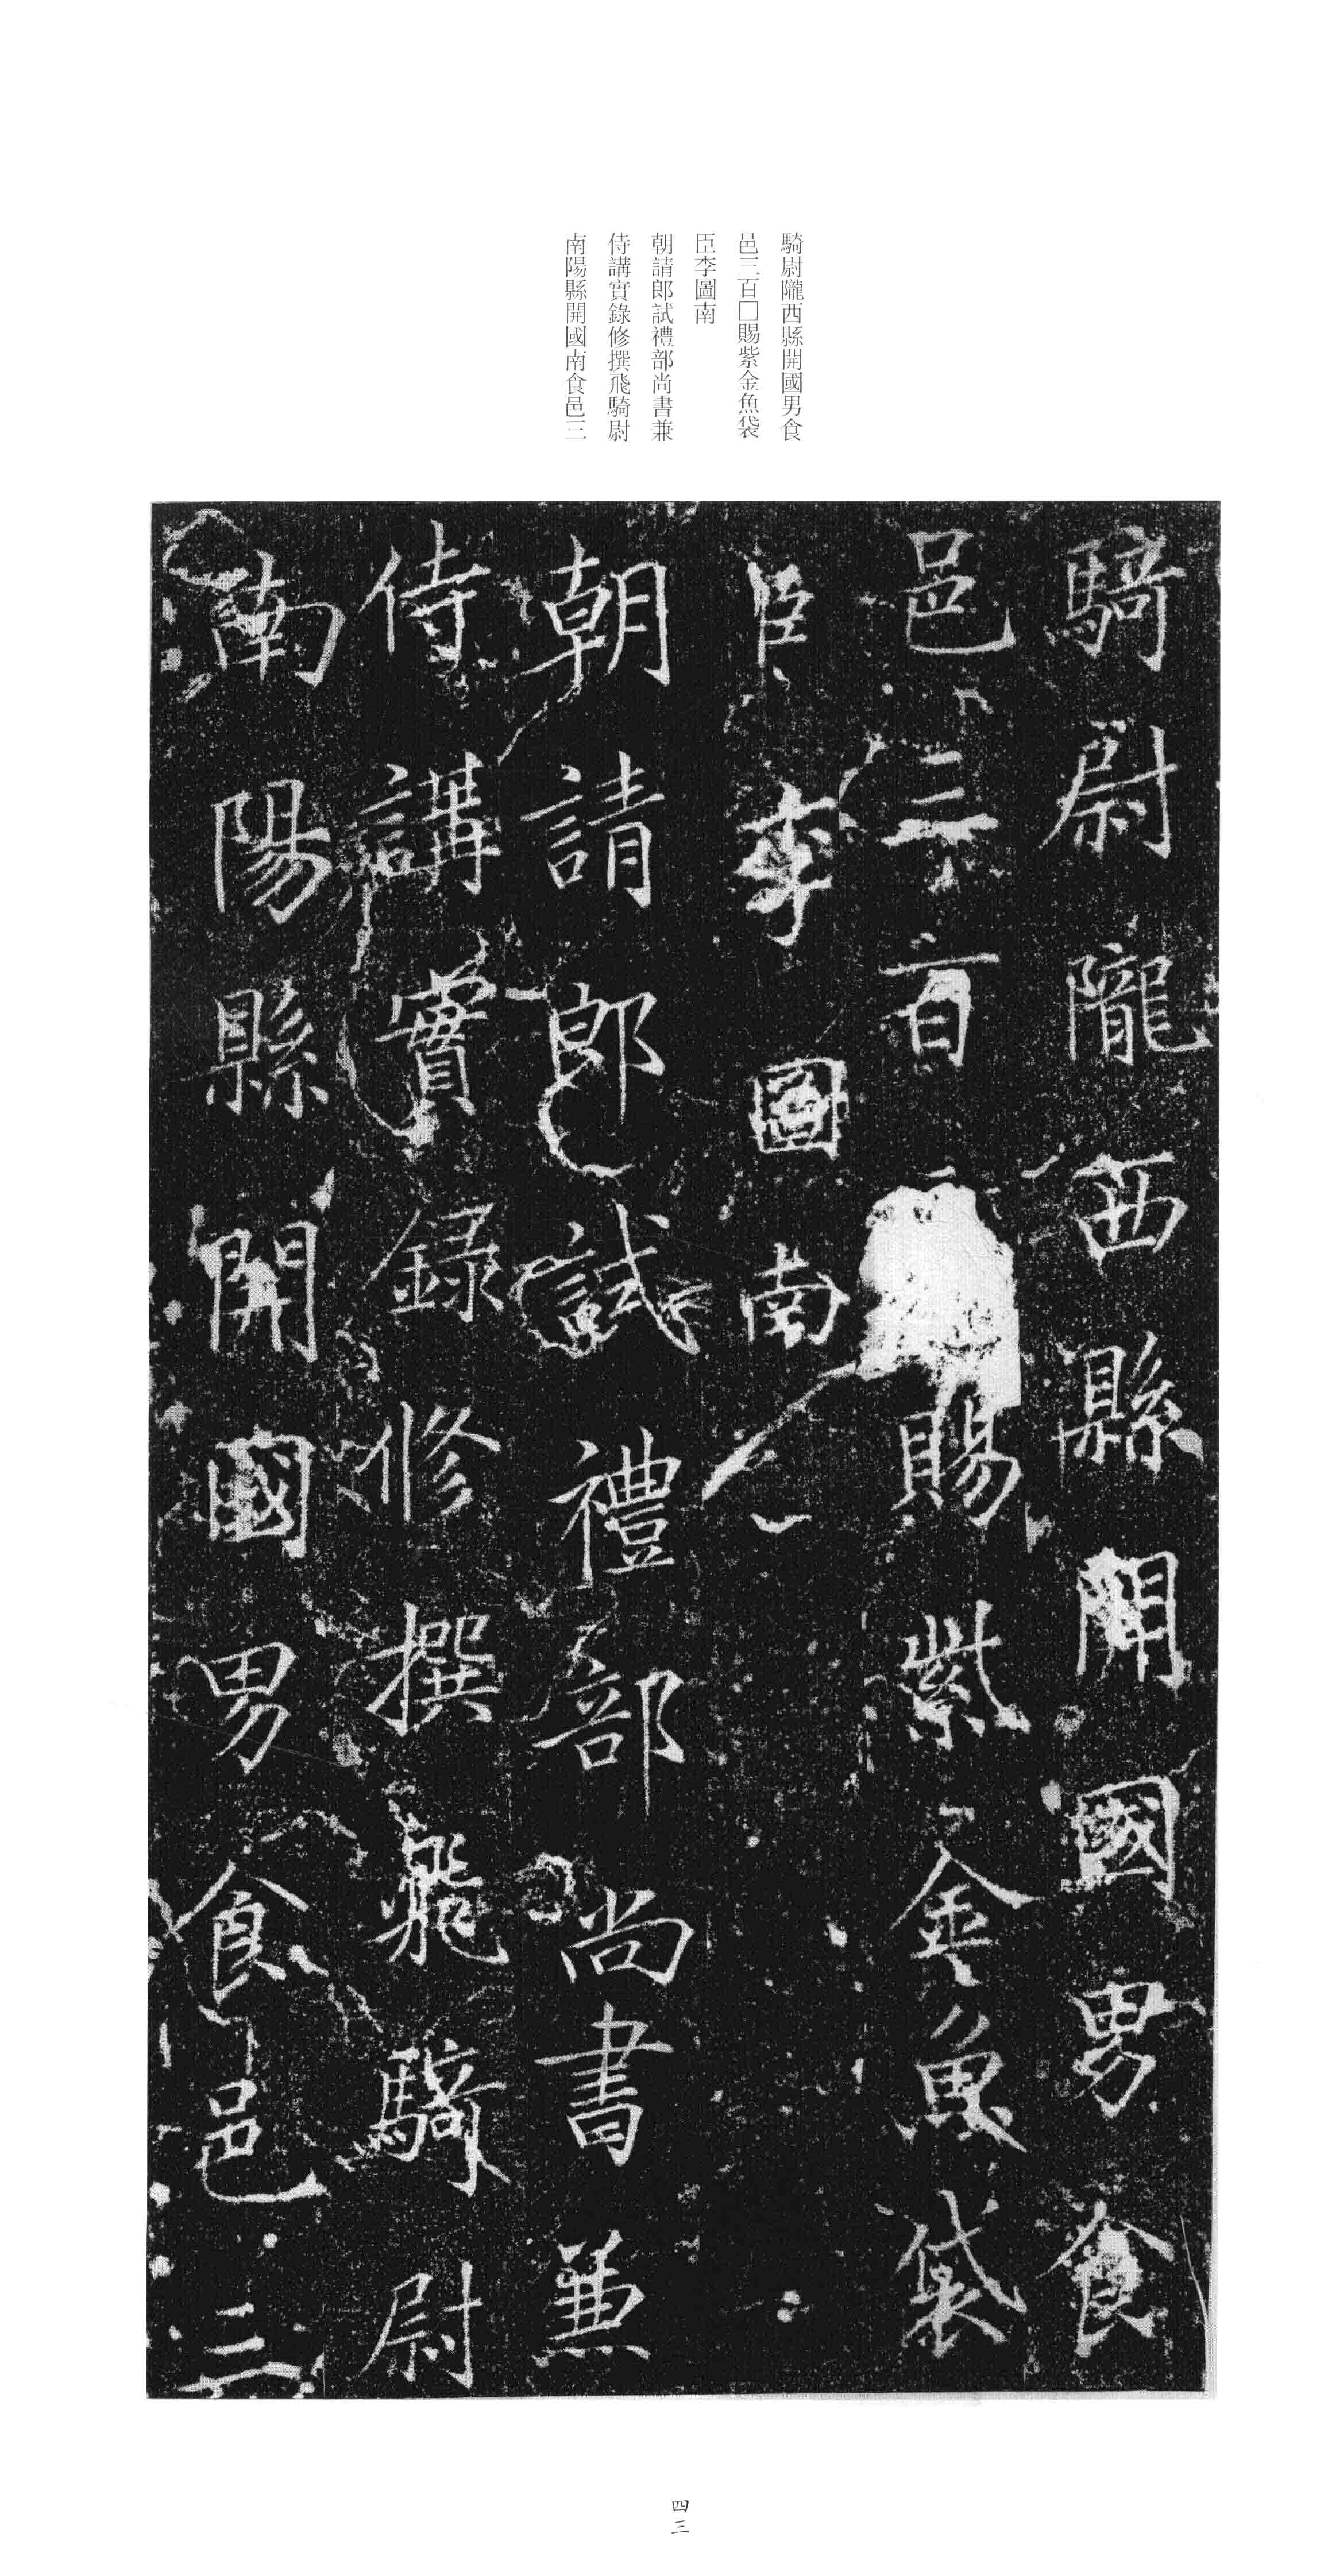 騎尉隴西縣開國男食
邑三百□賜紫金魚袋
臣李圖南
朝請郎試禮部尚書兼
侍講實錄修撰飛騎尉
南陽縣開國南食邑三
騎尉隴西縣開國男食
邑三百賜紫金魚袋
臣李圖南
朝請郎試禮部尚書兼
侍講實録修撰飛騎尉
南陽縣開國男食邑三
四三